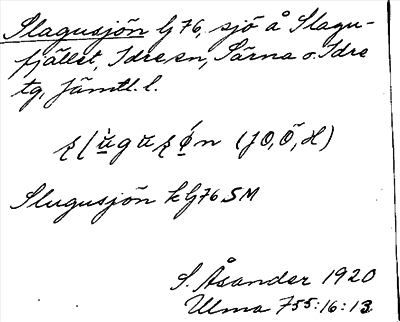 Slagusjön G76, sjö å Slagu-
fjället, Idre sn, Särna o. Idre
tg, Jämtl. l.
Slugusjön k G76 SM
S. Åsander 1920
Ulma 755:16:13